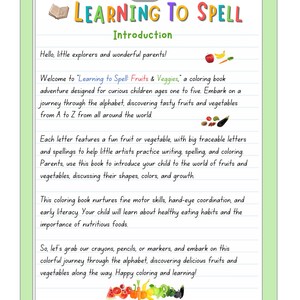 LEARNING TO SPELL
Introduction
Hello, little explorers and wonderful parents!
Welcome to "Learning to Spell Fruits & Veggies," a coloring book
adventure designed for curious children ages one to five. Embark on a
journey through the alphabet, discovering tasty fruits and vegetables
from A to Z from all around the world.
Each letter features a fun fruit or vegetable, with big traceable letters
and spellings to help little artists practice writing, spelling, and coloring.
Parents, use this book to introduce your child to the world of fruits and
vegetables, discussing their shapes, colors, and growth.
This coloring book nurtures fine motor skills, hand-eye coordination, and
early literacy. Your child will learn about healthy eating habits and the
importance of nutritious foods.
So, let's grab our crayons, pencils, or markers, and embark on this
colorful journey through the alphabet, discovering delicious fruits and
vegetables along the way. Happy coloring and learning!